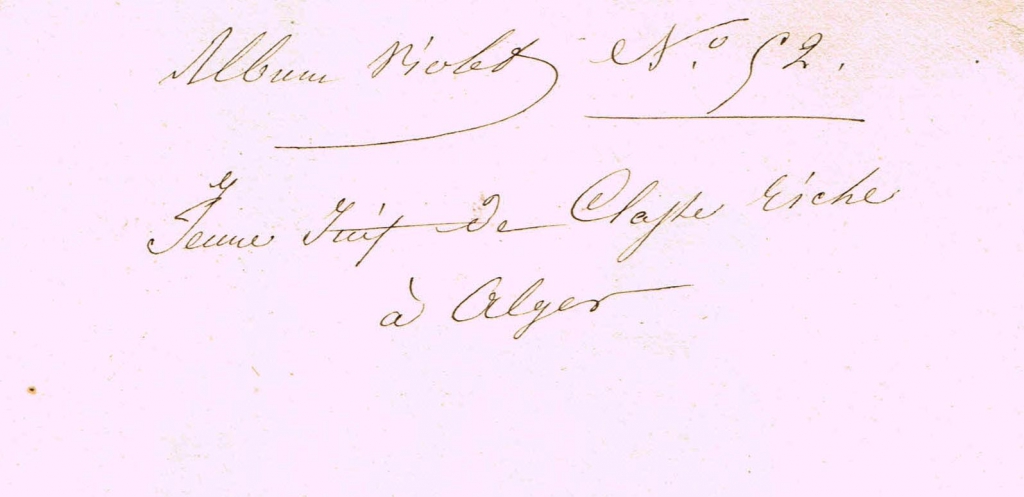 Album Violet N.º 52.
Jeune Juif de Classe riche
à Alger